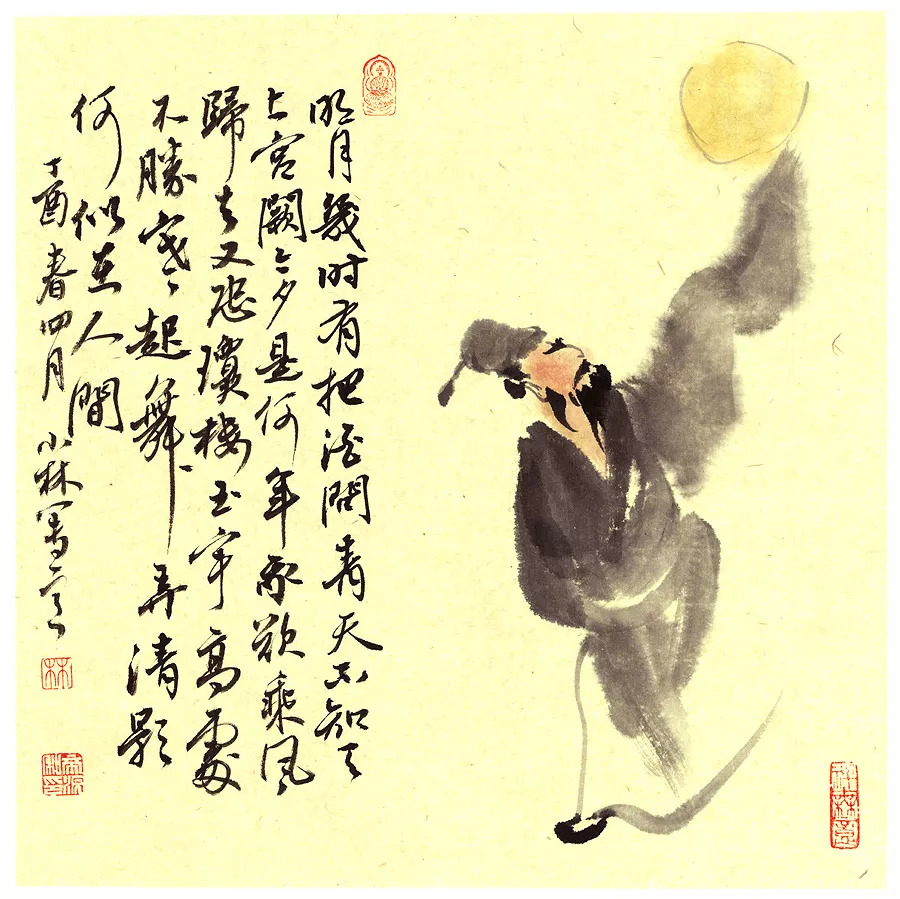 明月幾时有把酒問青天不知天
上宫闕今夕是何年我欲乘风
歸去又恐瓊楼玉宇高處
不勝寒起舞弄清影
何似在人間
丁酉春四月小林寫意
林